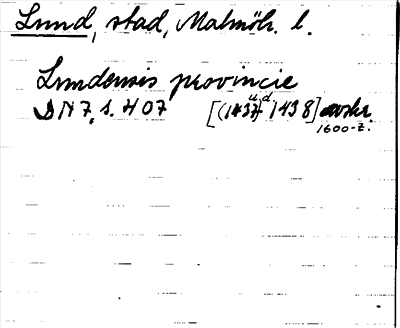 Lund, stad, Malmöh. l.
Lundensis provincie
DN 7, s. 407 [(1437 u.d. 1438] avskr.
1600-t.